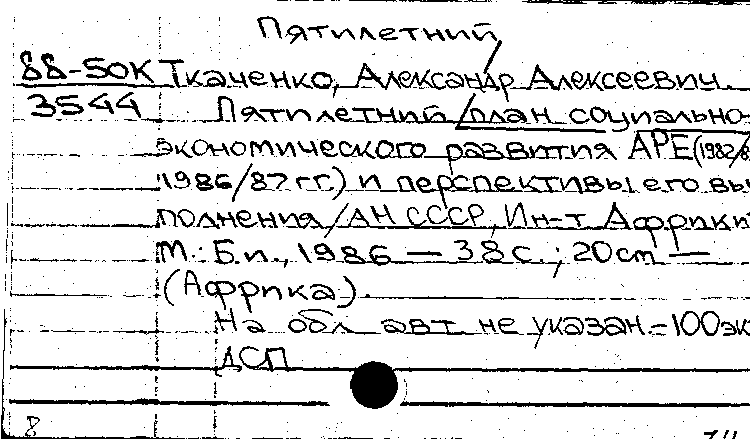 Пятилетний
88-50К Ткаченко, Александр Алексеевич.
3544 Пятилетний план социально-
экономического развития АРЕ (1982/8
1986/87 гг.) и перспективы его вы-
полнения / АН СССР, Ин-т Африки
М.: Б.и., 1986 — 38 с.; 20 cm —
(Африка).
На обл авт. не указан = 100 эк
ДСП
8